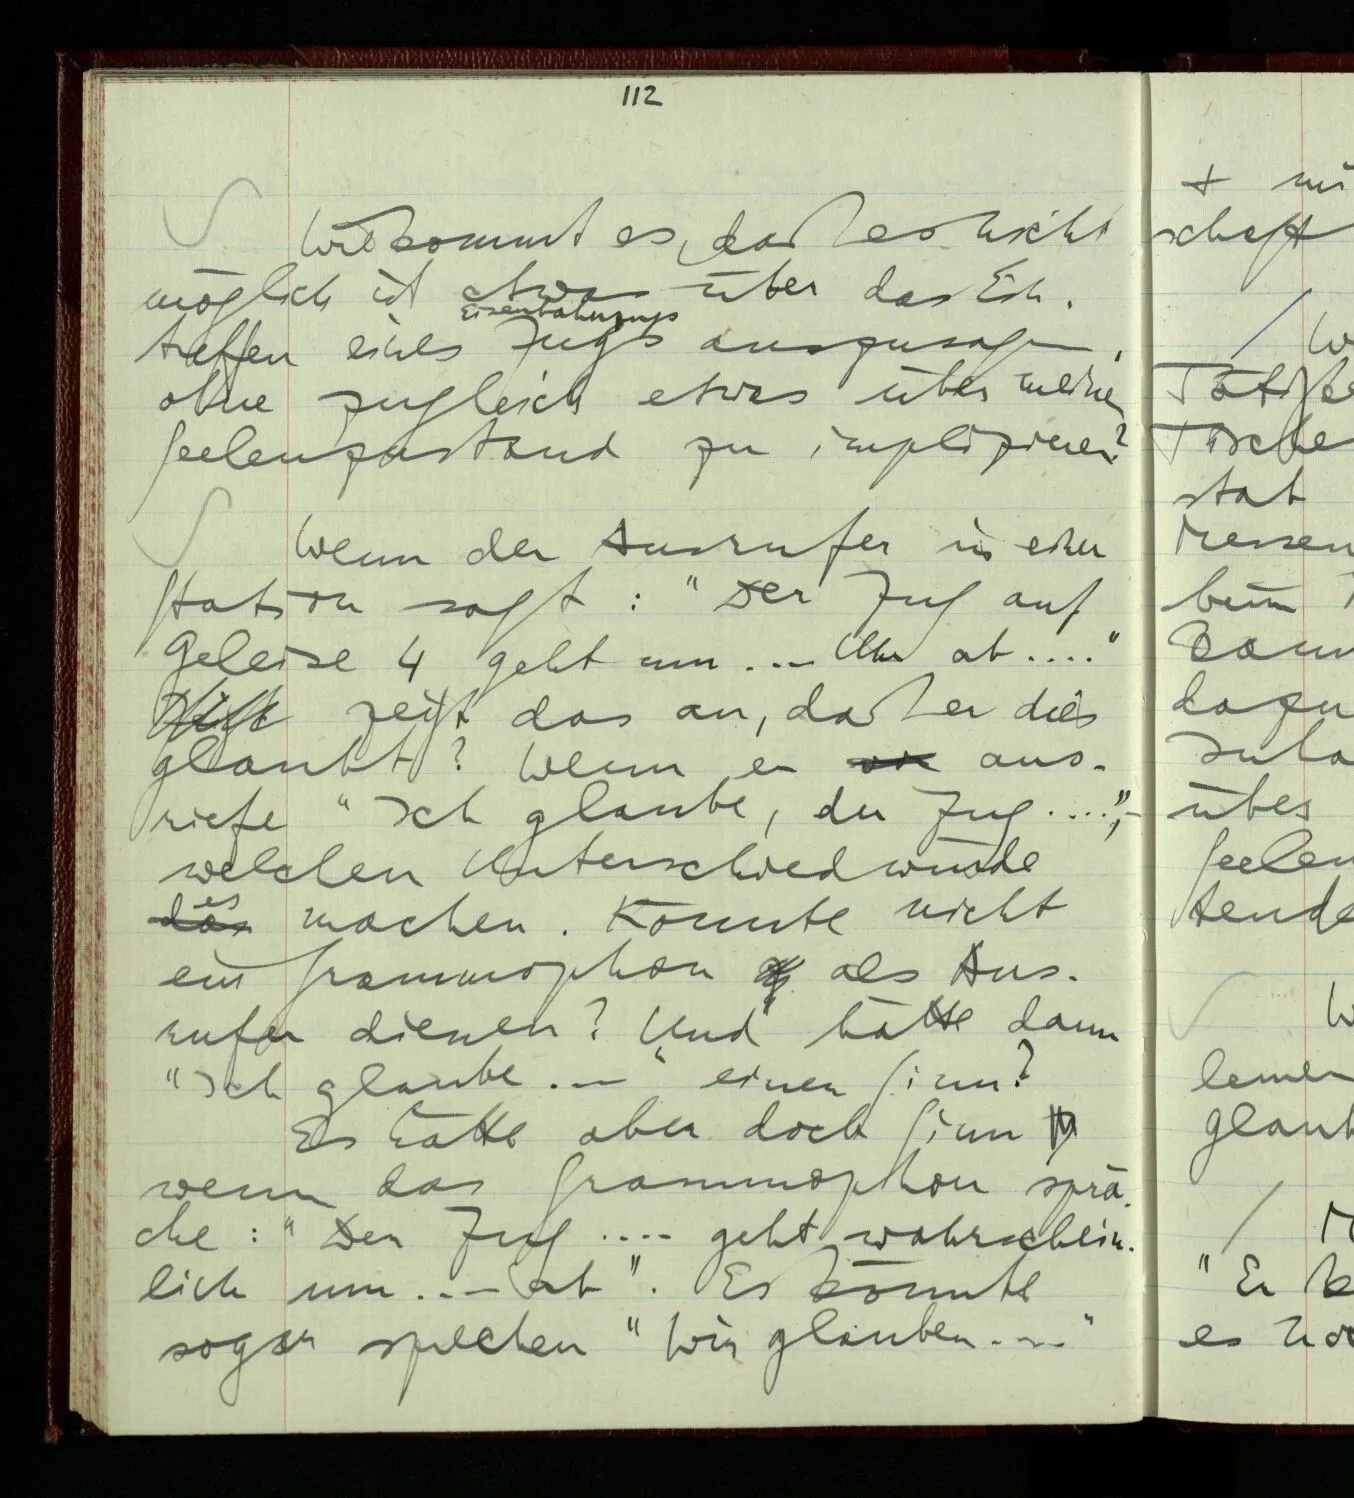 112
Wie kommt es, daß es nicht
möglich ist etwas über das Ein-
Eisenbahnzugs
treffen eines Zugs auszusagen,
ohne zugleich etwas über meinen
Seelenzustand zu implizieren?
Wenn der Ausrufer in einer
Station sagt: "Der Zug auf
Geleise 4 geht um ... Uhr ab ...."
zeigt das an, daß er dies
glaubt? Wenn er aus-
riefe "Ich glaube, der Zug ....",-
welchen Unterschied würde
es
das machen. Könnte nicht
ein Grammophon als Aus-
rufer dienen? Und hätte dann
"Ich glaube ..." einen Sinn?
Es hätte aber doch Sinn
wenn das Grammophon sprä-
che: "Der Zug .... geht wahrschein-
lich um ... ab". Es könnte
sogar sprechen "Wir glauben ...."
schaft
Tische
stat
messen
beim
dazu
über
Seelen
tende
lernen
glaub
"Er
es